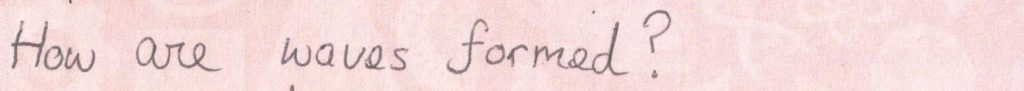 How are waves formed?